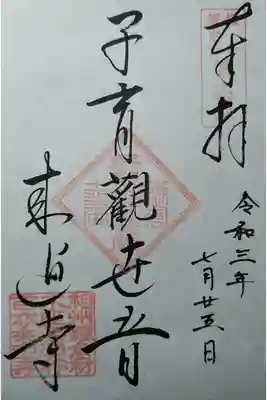 奉拝
令和三年
七月廿五日
子育觀世音
来迎寺